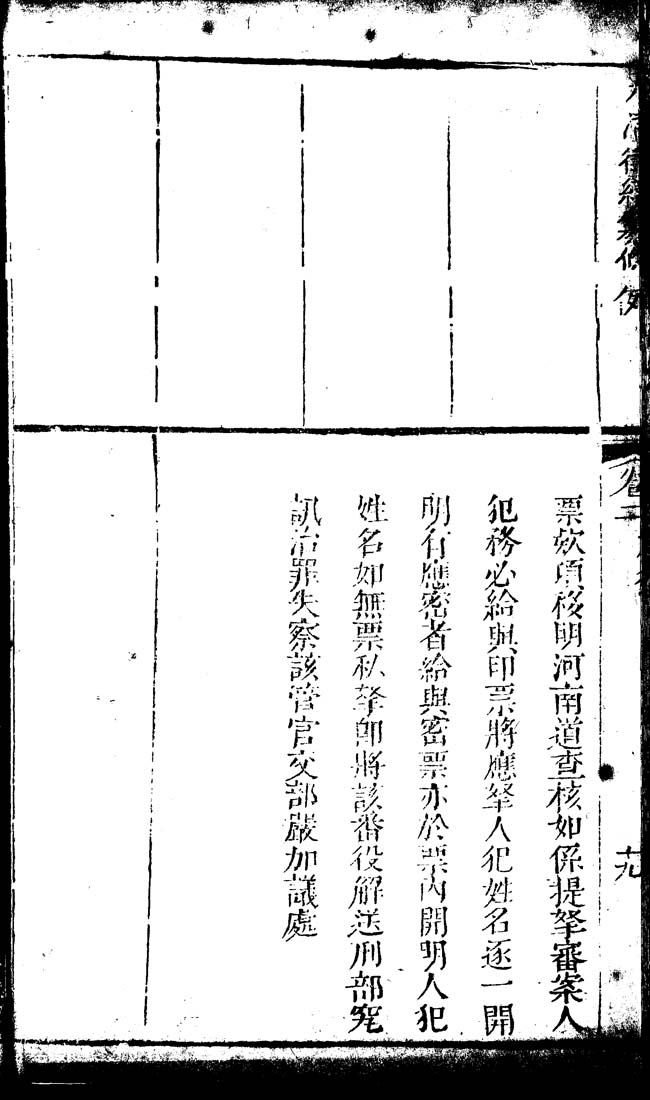 票欵項移明河南道查核如係提拏審案人
犯務必給與印票將應拏人犯姓名逐一開
明有應密者給與密票亦於票內開明人犯
姓名如無票私拏卽將該番役解送刑部究
訊治罪失察該管官交部嚴加議處
十九